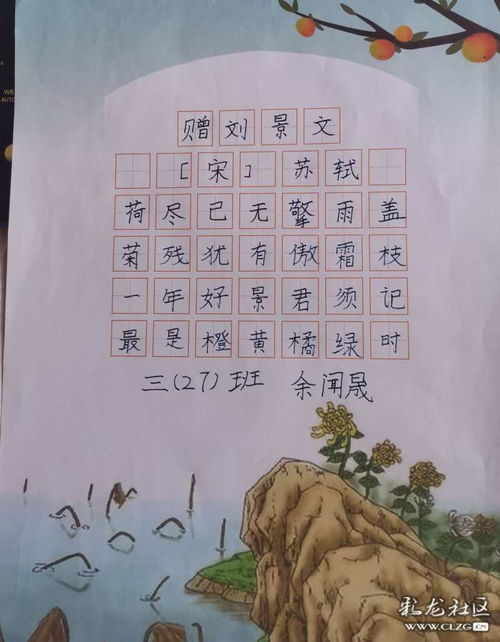 赠刘景文
[宋] 苏轼
荷尽已无擎雨盖
菊残犹有傲霜枝
一年好景君须记
最是橙黄橘绿时
三(27)班 余闻晟
WB
AUTO
www.CLZG.cn